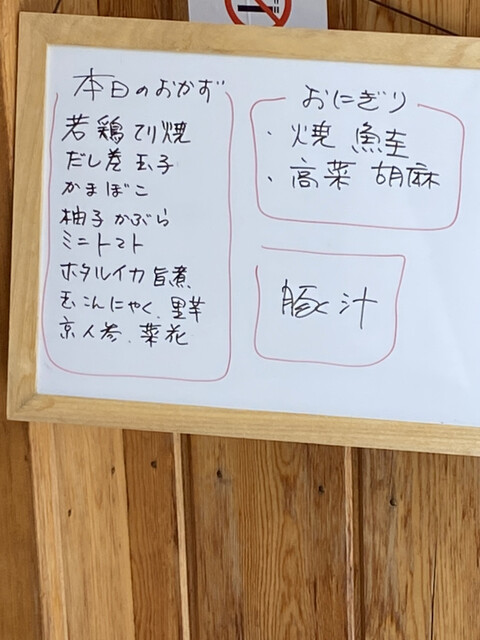 本日のおかず
若鶏てり焼
だし巻玉子
かまぼこ
柚子かぶら
ミニトマト
ホタルイカ旨煮
玉こんにゃく、里芋
京人参、菜花
おにぎり
・焼鮭
・高菜胡麻
豚汁